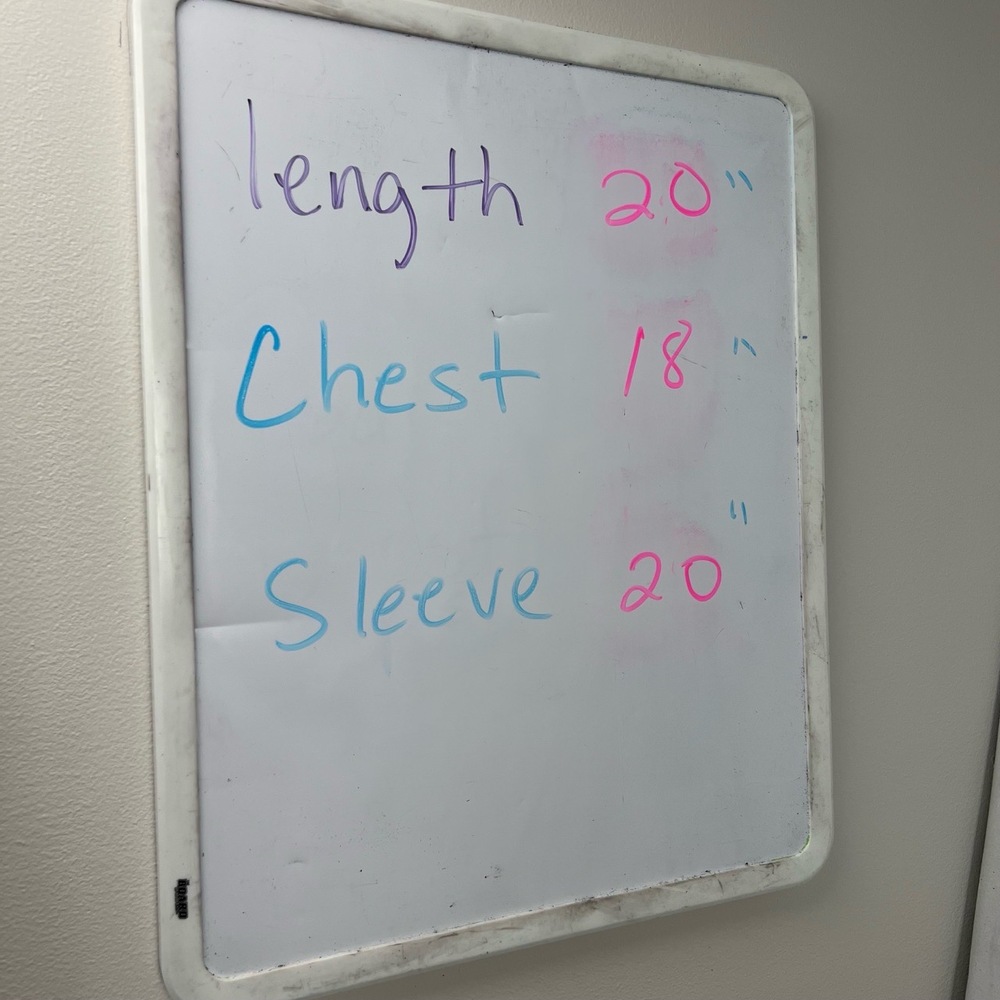 length 20"
Chest 18"
Sleeve 20"